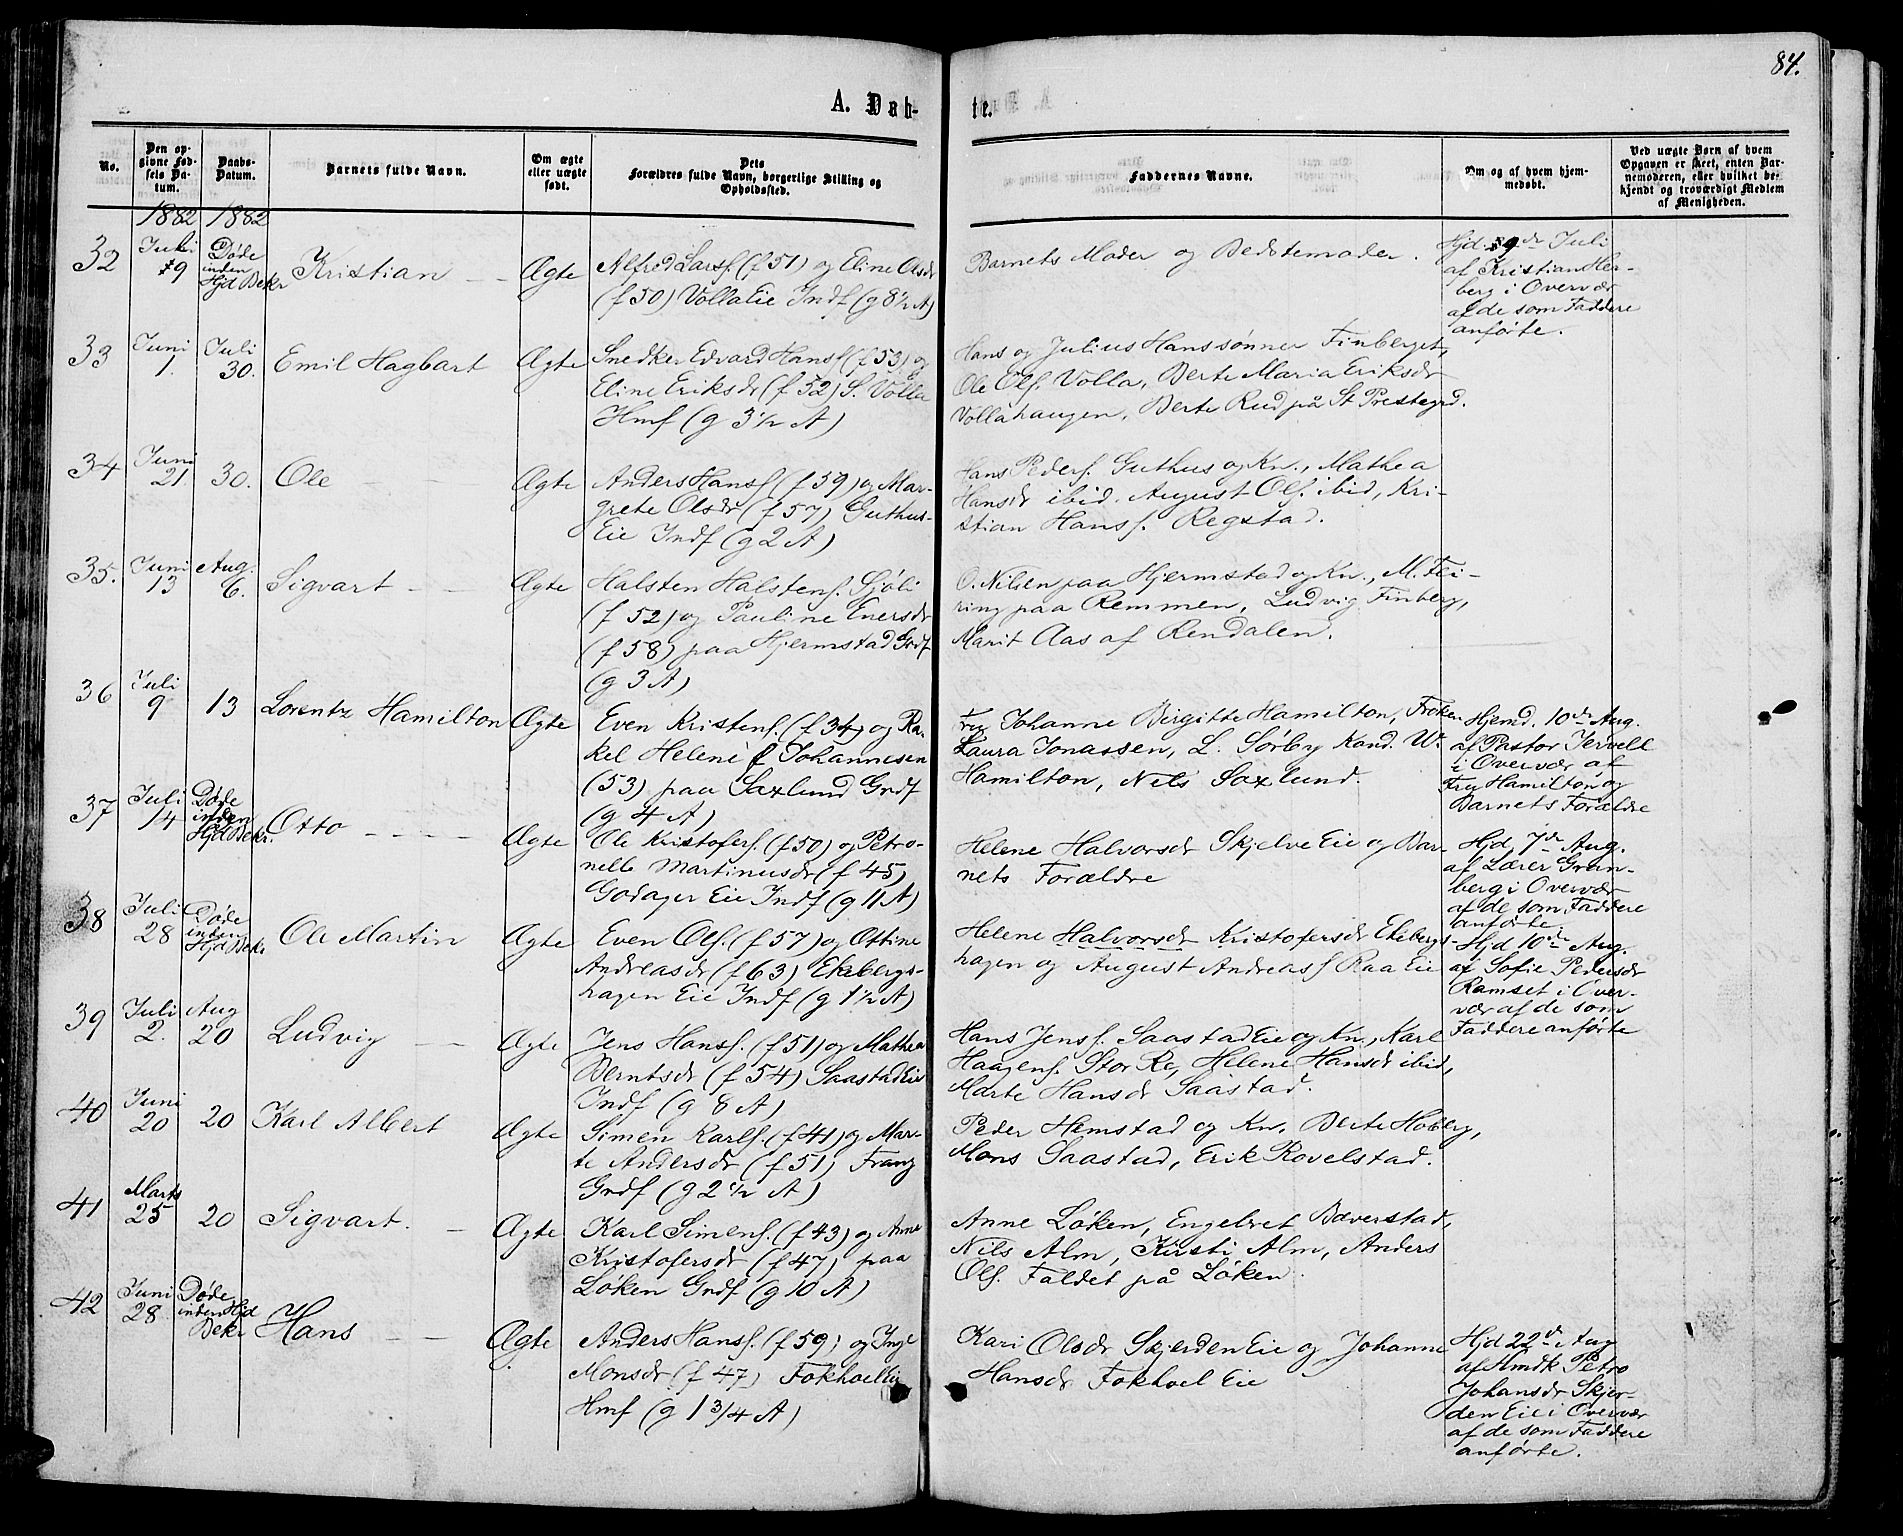 84.
A. Døbte.
No.
Den opgivne Fødsels Datum.
Daabs-Datum.
Barnets fulde Navn.
Om ægte eller uægte født.
Dets Forældres fulde Navn, borgerlige Stilling og Opholdssted.
Faddernes Navne.
Om og af hvem hjemmedøbt.
Ved uægte Børn af hvem Opgaven er skeet, enten Barnemoderen, eller hvilket bekjendt og troværdigt Medlem af Menigheden.
1882 1882
32 Juli 9 Døde inden Hjd Bekr Kristian Ægte
Alfred Larss. (f 51) og Eline Olsdr
(f 50) Volla Eie Indf (g 8½ A)
Barnets Moder og Bedstemoder.
Hjd. 9de Juli
af Kristian Her-
berg i Overvær
af de som Faddere
anførte.
33 Juni 1. Juli 30. Emil Hagbart Ægte
Snedker Edvard Hanss (f 53) og
Eline Eriksdr (f 52) S. Volla
Hmf (g 3½ A)
Hans og Julius Hanssønner Finberget,
Ole Ols. Volla, Berte Maria Eriksdr
Vollahaugen, Berte Rud på St Prestegrd.
34 Juni 21. 30. Ole Ægte
Anders Hanss (f 59) og Mar-
grete Olsdr (f 57) Guthus-
Eie Indf (g 2 A)
Hans Peders. Guthus og Kn., Mathea
Hansdr ibid. August Ols. ibid, Kri-
stian Hanss. Regstad.
35. Juni 13 Aug. 6. Sigvart Ægte
Halsten Halstens. Sjøli
(f 52) og Pauline Enersdr
(f 58) paa Hjermstad Grdf
(g 3 A)
O. Nilsen paa Hjermstad og Kn., M. Fei-
ring paa Remmen, Ludvig Finberg,
Marit Aas af Rendalen.
36 Juli 9 13 Lorentz Hamilton Ægte
Even Kristens. (f 34) og Ra-
kel Helene f Johannesen
(53) paa Saxlund Grdf
(g 4 A)
Fru Johanne Birgitte Hamilton, Frøken
Laura Jonassen, L. Sørby Kand. W.
Hamilton, Nils Saxlund.
Hjemd. 10de Aug.
af Pastor Jervell
i Overvær af
Fru Hamilton og
Barnets Forældre
37 Juli 14 Døde inden Hjd Bekr. Otto Ægte
Ole Kristofers. (f 50) og Petro-
nelle Martinusdr (f 45)
Godager Eie Indf (g 11 A)
Helene Halvorsdr Skjelve Eie og Bar-
nets Forældre
Hjd 7de Aug.
af Lærer Gran-
berg i Overvær
af de som Faddere
anførte
38 Juli 28 Døde inden Hjd Bekr. Ole Martin Ægte
Even Ols. (f 57) og Ottine
Andreasdr (f 63) Ekebergs-
hagen Eie Indf (g 1½ A)
Helene Halvorsdr Kristofersdr Ekebergs-
hagen og August Andreass Raa Eie
Hjd 10de Aug.
af Sofie Pedersdr
Ramset i Over-
vær af de som
Faddere anførte
39 Juli 2. Aug 20 Ludvig Ægte
Jens Hanss. (f 51) og Mathea
Berntsdr (f 54) Saastad Eie
Indf (g 8 A)
Hans Jenss. Saastad Eie og Kn., Karl
Haagens. Stor Re, Helene Hansdr ibid,
Marte Hansdr Saastad.
40 Juni 20 20 Karl Albert Ægte
Simen Karls. (f 41) og Mar-
te Andersdr (f 51) Frang
Grdf (g 2½ A)
Peder Hemstad og Kn. Berte Hoberg,
Mons Saastad, Erik Rovelstad.
41 Marts 25 20 Sigvart. Ægte
Karl Simens. (f 43) og Anne
Kristofersdr (f 47) paa
Løken Grdf (g 10 A)
Anne Løken, Engebret Bæverstad,
Nils Alm, Kirsti Alm, Anders
Ols. Faldet på Løken.
42 Juni 28 Døde inden Hjd Bekr Hans Ægte
Anders Hanss. (f 59) og Inge
Monsdr (f 47) Fokhol Eie
Hmf (g 1 3/4 A)
Kari Olsdr Skjerden Eie og Johanne
Hansdr Fokhol Eie
Hjd 22de Aug
af Hmdk Petro
Johansdr Skjer-
den Eie i Overvær
af de som Faddere
anførte.